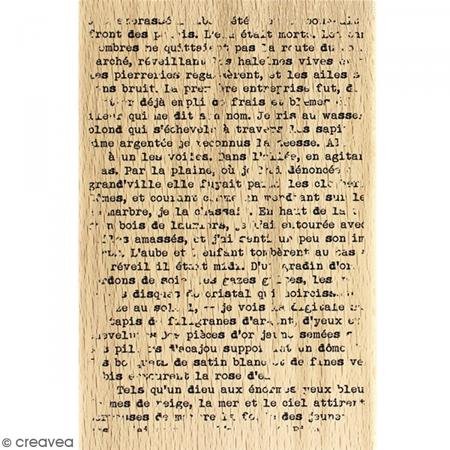 été
front des L'eau était morte.
ombres ne quittaient pas la route du
réveillant les haleines vives
les pierreries regardèrent, et les ailes
sans bruit. La première entreprise fut,
déjà empli de frais et blêmes
fleur qui me dit son nom. Je ris au wasser
blond qui s'échevela à travers les sapi
cime argentée je reconnus la déesse. Al
à un les voiles. Dans l'allée, en agitan
as. Par la plaine, où je l'ai dénoncée
grand'ville elle fuyait parmi les clochers
dômes, et courant comme un mendiant sur le
marbre, je la chassais. En haut de la
un bois de lauriers, je l'ai entourée avec
voiles amassés, et j'ai senti un peu son im
L'aube et l'enfant tombèrent au bas
réveil il était midi. D'un gradin d'or
cordons de soie, les gazes grises, les
disques de cristal qui noircissen
au soleil, je vois la digitale
tapis de filigranes d'argent, d'yeux
chevelures. Des pièces d'or jaune semées
des piliers d'acajou supportant un dôme
bouquets de satin blanc et de fines ve
rubis entourent la rose d'eau.
Tels qu'un dieu aux énormes yeux bleu
formes de neige, la mer et le ciel attirent
terrasses de marbre la foule des jeunes
© creavea